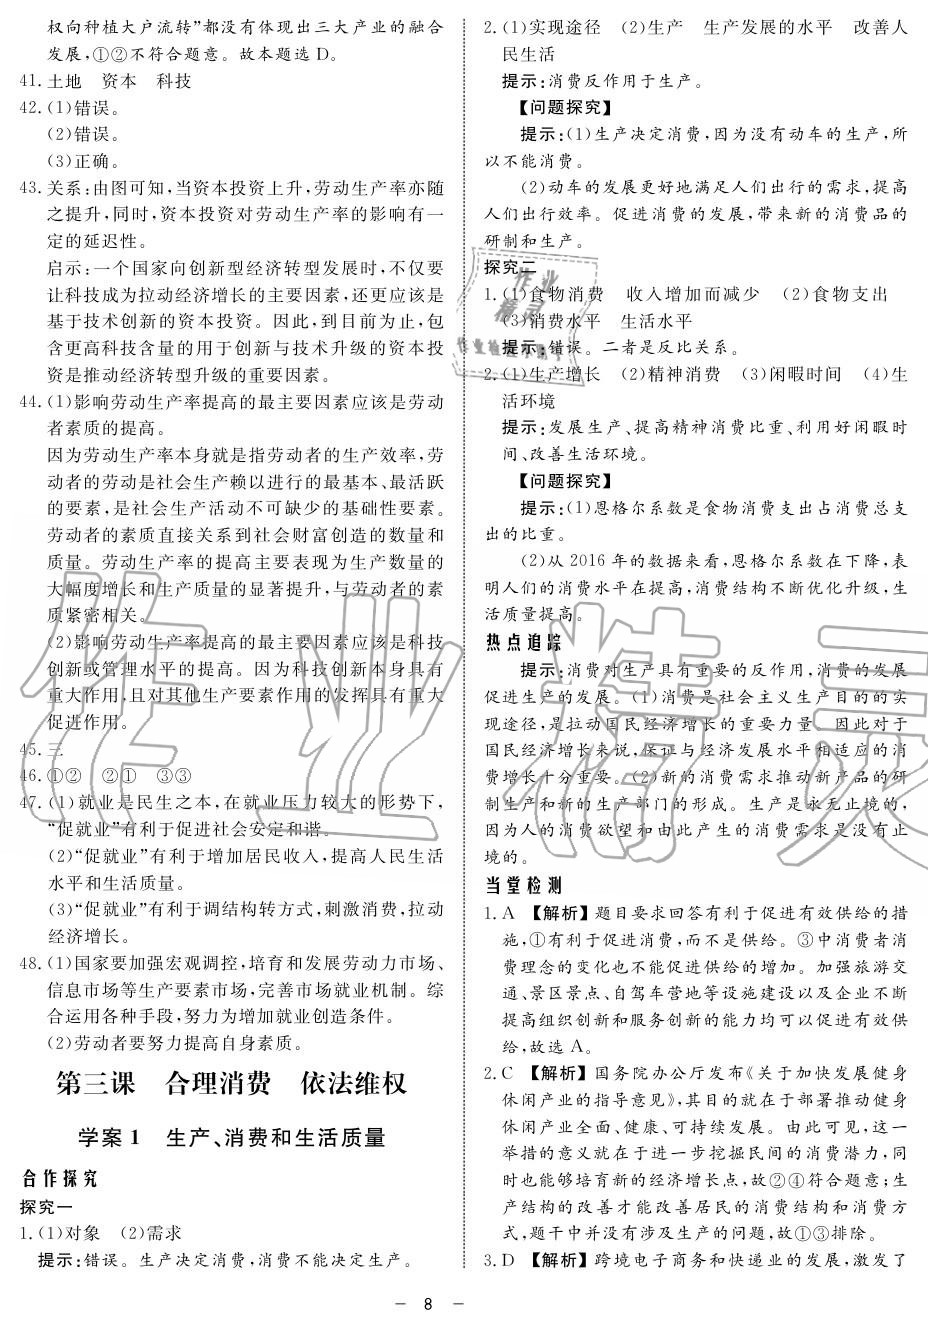 权向种植大户流转”都没有体现出三大产业的融合
发展,①②不符合题意。故本题选D。
41.土地　资本　科技
42.(1)错误。
(2)错误。
(3)正确。
43.关系:由图可知,当资本投资上升,劳动生产率亦随
之提升,同时,资本投资对劳动生产率的影响有一
定的延迟性。
启示:一个国家向创新型经济转型发展时,不仅要
让科技成为拉动经济增长的主要因素,还更应该是
基于技术创新的资本投资。因此,到目前为止,包
含更高科技含量的用于创新与技术升级的资本投
资是推动经济转型升级的重要因素。
44.(1)影响劳动生产率提高的最主要因素应该是劳动
者素质的提高。
因为劳动生产率本身就是指劳动者的生产效率,劳
动者的劳动是社会生产赖以进行的最基本、最活跃
的要素,是社会生产活动不可缺少的基础性要素。
劳动者的素质直接关系到社会财富创造的数量和
质量。劳动生产率的提高主要表现为生产数量的
大幅度增长和生产质量的显著提升,与劳动者的素
质紧密相关。
(2)影响劳动生产率提高的最主要因素应该是科技
创新或管理水平的提高。因为科技创新本身具有
重大作用,且对其他生产要素作用的发挥具有重大
促进作用。
45.三
46.①②　②①　③③
47.(1)就业是民生之本,在就业压力较大的形势下,
“促就业”有利于促进社会安定和谐。
(2)“促就业”有利于增加居民收入,提高人民生活
水平和生活质量。
(3)“促就业”有利于调结构转方式,刺激消费,拉动
经济增长。
48.(1)国家要加强宏观调控,培育和发展劳动力市场、
信息市场等生产要素市场,完善市场就业机制。综
合运用各种手段,努力为增加就业创造条件。
(2)劳动者要努力提高自身素质。
第三课　合理消费　依法维权
学案1　生产、消费和生活质量
合作探究
探究一
1.(1)对象　(2)需求
提示:错误。生产决定消费,消费不能决定生产。
2.(1)实现途径　(2)生产　生产发展的水平　改善人
民生活
提示:消费反作用于生产。
【问题探究】
提示:(1)生产决定消费,因为没有动车的生产,所
以不能消费。
(2)动车的发展更好地满足人们出行的需求,提高
人们出行效率。促进消费的发展,带来新的消费品的
研制和生产。
探究二
1.(1)食物消费　收入增加而减少　(2)食物支出
(3)消费水平　生活水平
提示:错误。二者是反比关系。
2.(1)生产增长　(2)精神消费　(3)闲暇时间　(4)生
活环境
提示:发展生产、提高精神消费比重、利用好闲暇时
间、改善生活环境。
【问题探究】
提示:(1)恩格尔系数是食物消费支出占消费总支
出的比重。
(2)从2016年的数据来看,恩格尔系数在下降,表
明人们的消费水平在提高,消费结构不断优化升级,生
活质量提高。
热点追踪
提示:消费对生产具有重要的反作用,消费的发展
促进生产的发展。(1)消费是社会主义生产目的的实
现途径,是拉动国民经济增长的重要力量。因此对于
国民经济增长来说,保证与经济发展水平相适应的消
费增长十分重要。(2)新的消费需求推动新产品的研
制生产和新的生产部门的形成。生产是永无止境的,
因为人的消费欲望和由此产生的消费需求是没有止
境的。
当堂检测
1.A　【解析】题目要求回答有利于促进有效供给的措
施,①有利于促进消费,而不是供给。③中消费者消
费理念的变化也不能促进供给的增加。加强旅游交
通、景区景点、自驾车营地等设施建设以及企业不断
提高组织创新和服务创新的能力均可以促进有效供
给,故选A。
2.C　【解析】国务院办公厅发布《关于加快发展健身
休闲产业的指导意见》,其目的就在于部署推动健身
休闲产业全面、健康、可持续发展。由此可见,这一
举措的意义就在于进一步挖掘民间的消费潜力,同
时也能够培育新的经济增长点,故②④符合题意;生
产结构的改善才能改善居民的消费结构和消费方
式,题干中并没有涉及生产的问题,故①③排除。
3.D　【解析】跨境电子商务和快递业的发展,激发了
— 8 —
作业精灵